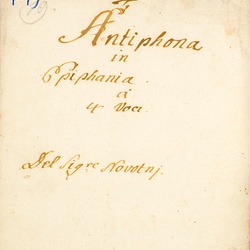 Antiphona
in
Epiphania
à
4 Voci
Del Sigre Novotnj.